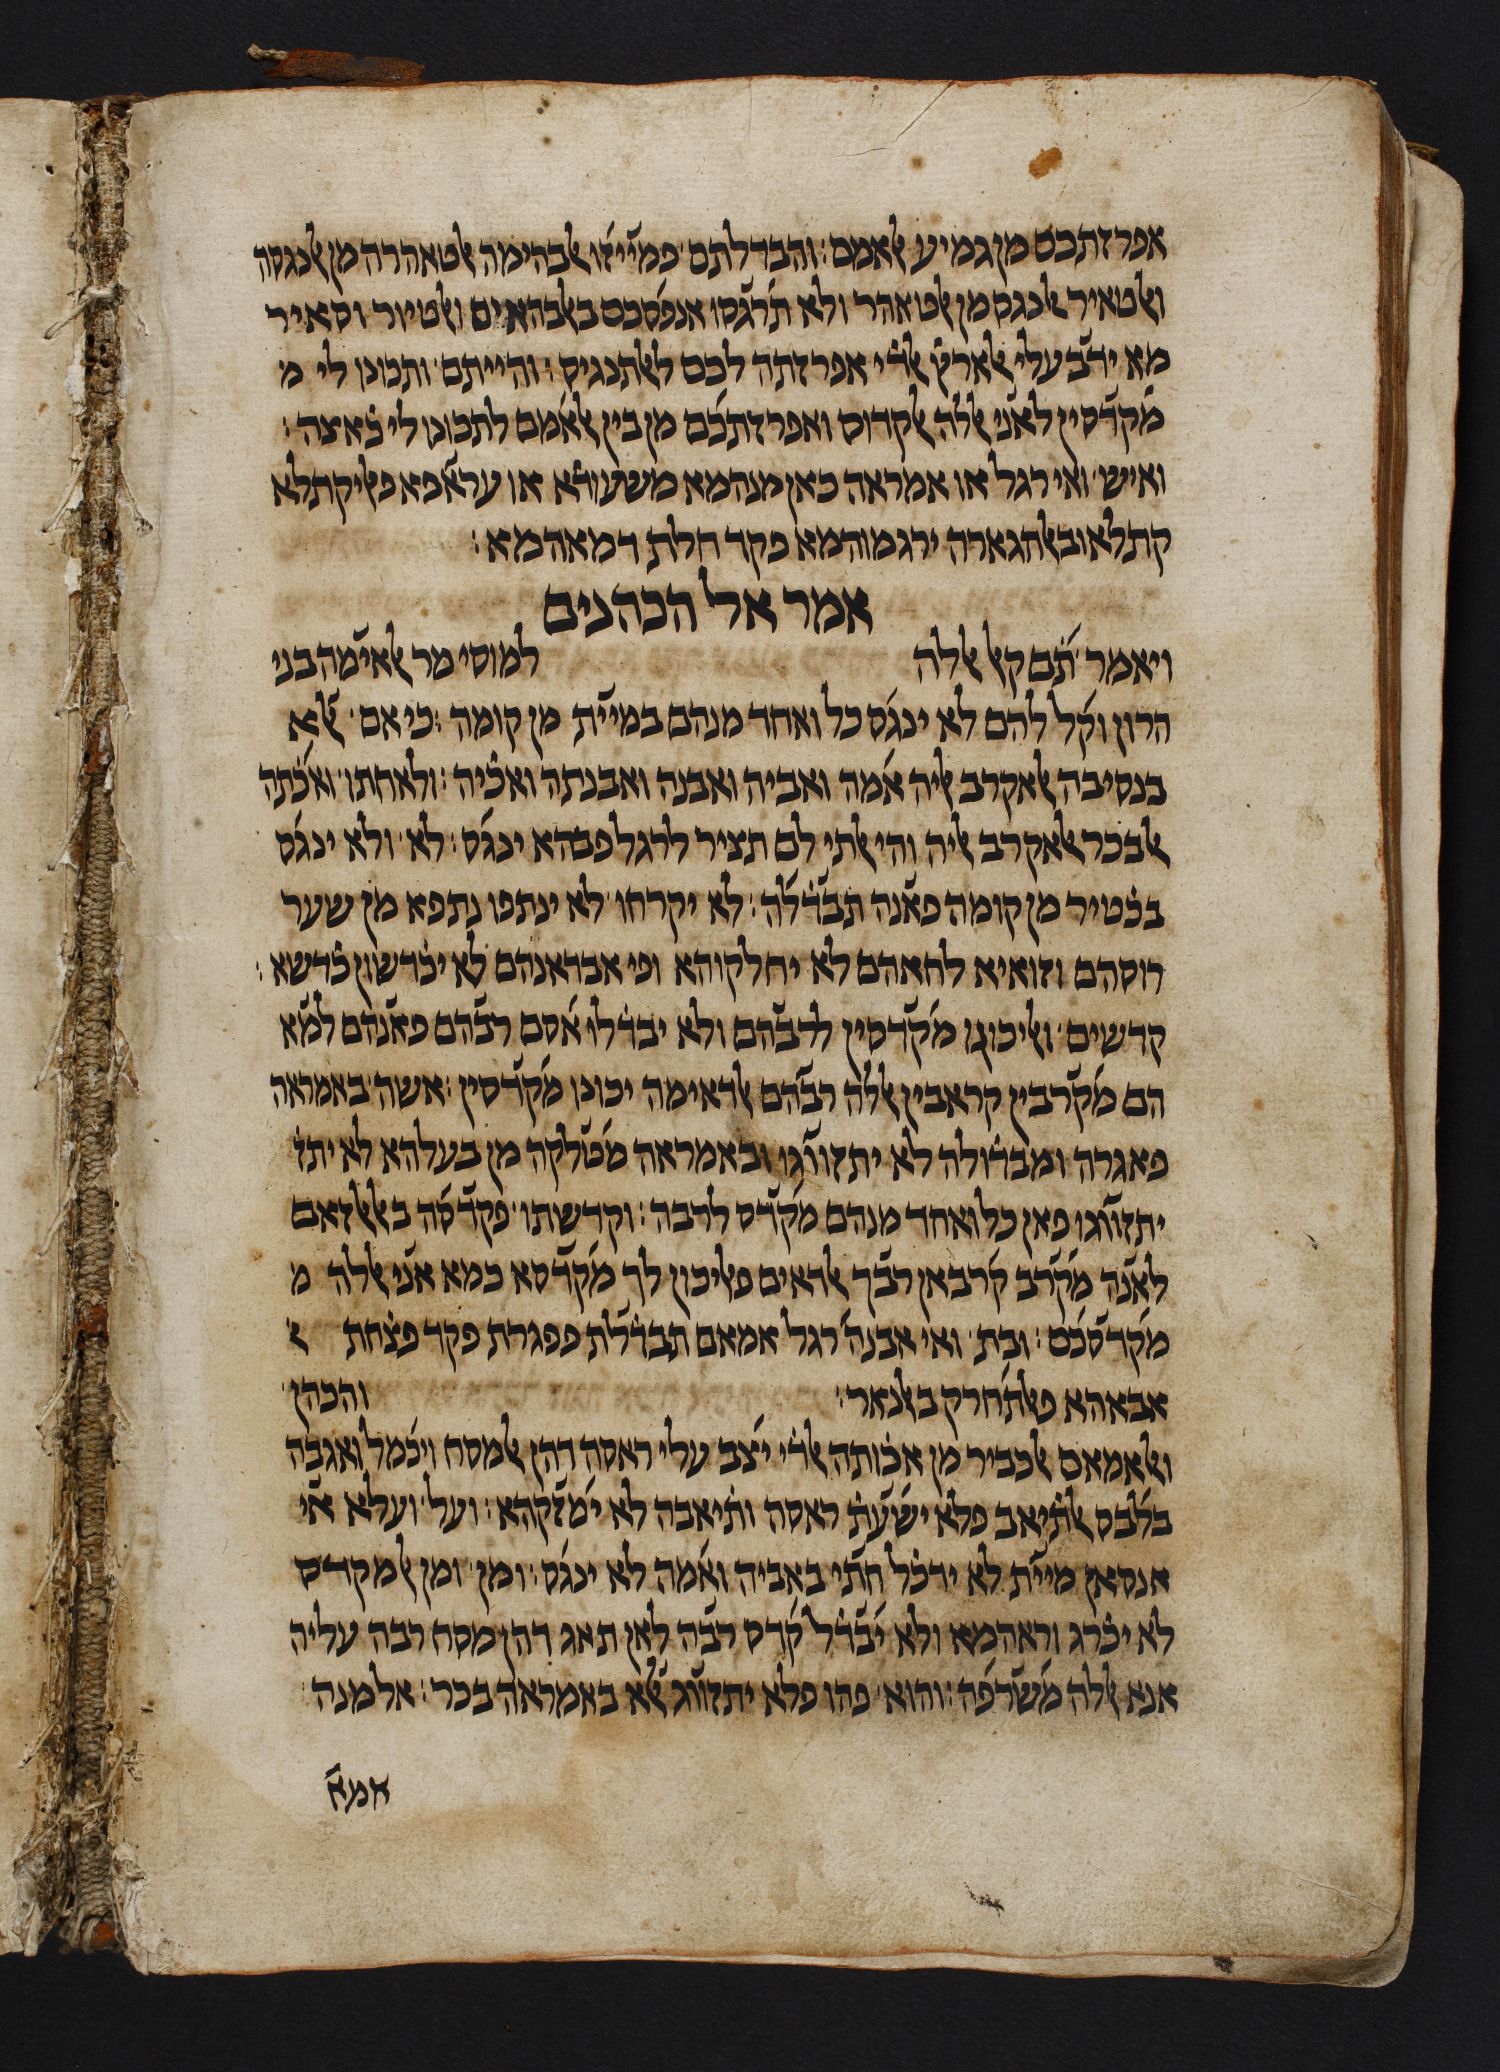 אפרזתכם מן גמיע ﭏאמם : והבדלתם ׳ פמייזו ﭏבהימה ﭏטאהרה מן ﭏנגסה
וﭏטאיר ﭏנגס מן ﭏטאהר ולא תרגסו אנפסכם בﭏבהאים וﭏטיור וסאיר
מא ידב עלי ﭏארץ ﭏדי אפרזתה לכם לﭏתנגיס : והייתם ׳ ותכונו לי מ׳
מקדסין לאני ﭏלה ﭏקדוס ואפרזתכם מן בין ﭏאמם לתכונו לי כאצה :
ואיש ׳ ואי רגל או אמראה כאן מנהמא משעודא או עראפא פﭏיקתלא
קתלא ובﭏחגארה ירגמוהמא פקד חלת דמאהמא :
אמר אל הכהנים
ויאמר ׳ תם קﭏ ﭏלה למוסי מר ﭏאימה בני
הרון וקל להם לא ינגס כל ואחד מנהם במיית מן קומה : כי אם ׳ ﭏא
בנסיבה ﭏאקרב ﭏיה אמה ואביה ואבנה ואבנתה ואכיה : ולאחתו ׳ ואכתה
ﭏבכר ﭏאקרב ﭏיה והי ﭏתי לם תציר לרגל פבהא ינגס : לא ׳ ולא ינגס
בכטיר מן קומה פאנה תבדלה : לא יקרחו ׳ לא ינתפו נתפא מן שער
רוסהם וזואיא לחאהם לא יחלקוהא ופי אבדאנהם לא יכדשון כדשא :
קדשים ׳ וﭏיכונו מקדסין לרבהם ולא יבדלו אסם רבהם פאנהם למא
הם מקרבין קראבין ﭏלה רבהם ﭏדאימה יכונו מקדסין : אשה ׳ באמראה
פאגרה ומבדולה לא יתזווגו ובאמראה מטלקה מן בעלהא לא יתז
יתזווגו פאן כל ואחד מנהם מקדס לרבה : וקדשתו ׳ פקדסה בﭏﭏזאם
לאנה מקרב קרבאן רבך ﭏדאים פﭏיכון לך מקדסא כמא אני ﭏלה מ
מקדסכם : ובת ׳ ואי אבנה רגל אמאם תבדלת פפגרת פקד פצחת
אבאהא פﭏתחרק בﭏנאר : והכהן ׳
וﭏאמאם ﭏכביר מן אכותה ﭏדי יצב עלי ראסה דהן ﭏמסח ויכמל ואגבה
בלבס ﭏתיאב פלא ישעת ראסה ותיאבה לא ימזקהא : ועל ׳ ועלא אי
אנסאן מיית לא ידכל חתי באביה ואמה לא ינגס : ומן ׳ ומן ﭏמקדס
לא יכרג וראהמא ולא יבדל קדס רבה לאן תאג דהן מסח רבה עליה
אנא ﭏלה משרפה : והוא ׳ פהו פלא יתזווג ﭏא באמראה בכר : אלמנה ׳
אמא